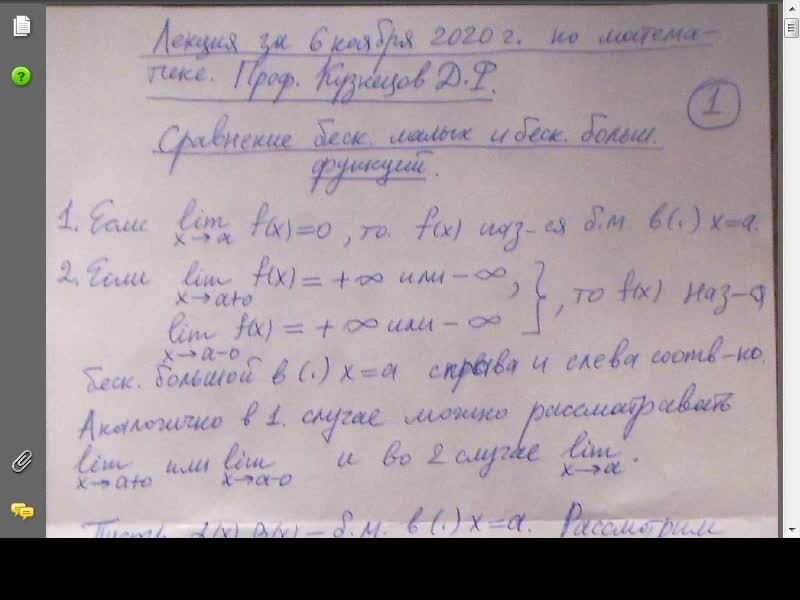 Лекция за 6 ноября 2020 г. по матема-
тике. Проф. Кузнецов Д.Ф.
1
Сравнение беск. малых и беск. больш.
функций.
1. Если lim f(x)=0, то f(x) наз-ся б.м. в (.) x=a.
x→a
2. Если lim f(x) = +∞ или -∞,
x→a+0
lim f(x) = +∞ или -∞ } , то f(x) наз-я
x→a-0
беск. большой в (.) x=a справа и слева соотв-но.
Аналогично в 1. случае можно рассматривать
lim или lim и во 2 случае lim.
x→a+0 x→a-0 x→a
Пусть α(x), β(x) – б.м. в (.) x=a. Рассмотрим